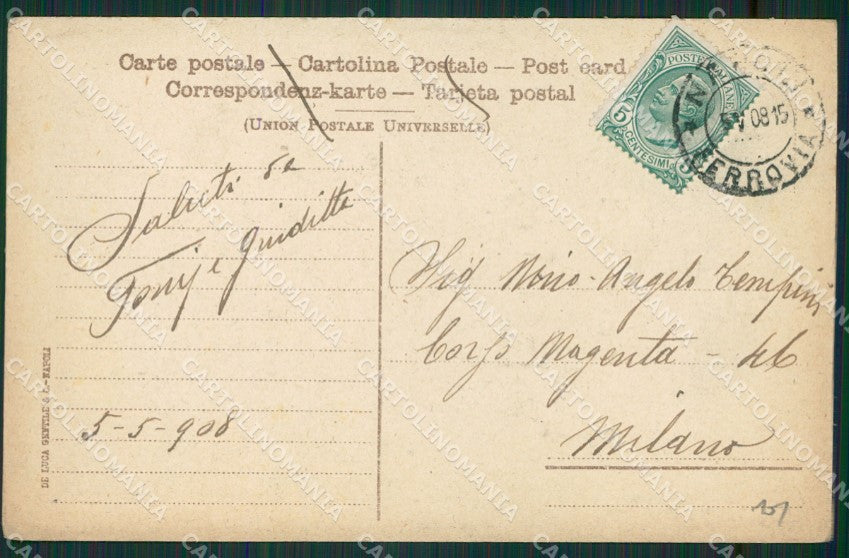 Carte postale — Cartolina Postale — Post card
Correspondenz-karte — Tarjeta postal
(UNION POSTALE UNIVERSELLE)
POSTE ITALIANE
5 CENTESIMI 5
NAPOLI
V 08 15
* FERROVIA *
Saluti da
Tonj e Giuditta
5-5-908
Sig Nino-Angelo Tempini
Corso Magenta - 46
Milano
DE LUCA GENTILE & C.-NAPOLI
CARTOLINOMANIA